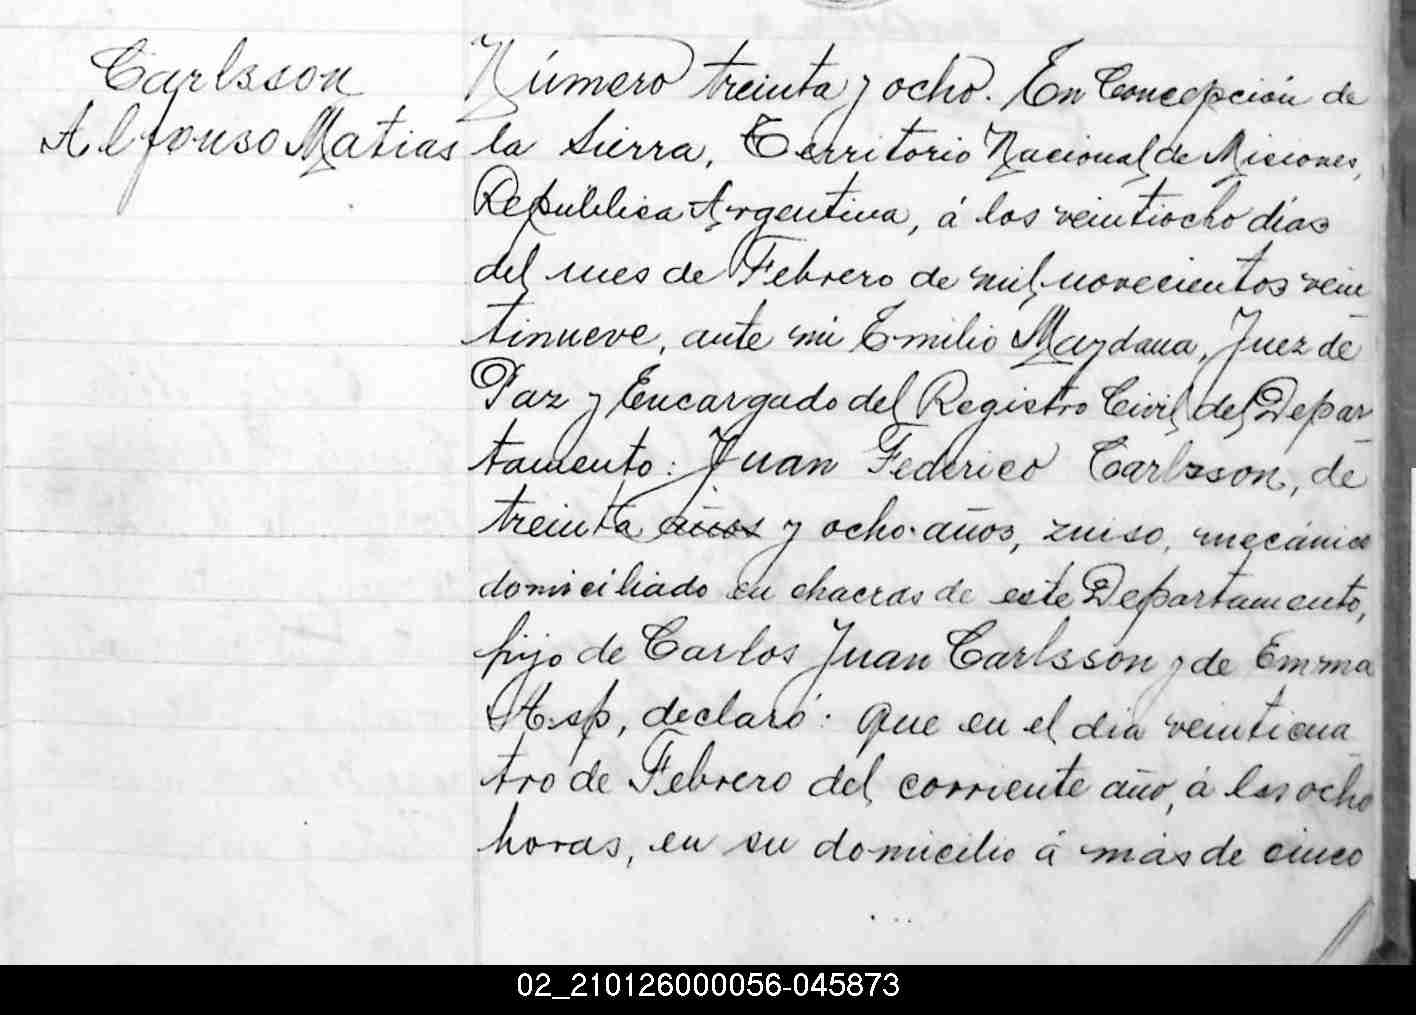 Carlsson
Alfonso Matias
Número treinta y ocho. En Concepción de
la Sierra, Territorio Nacional de Misiones,
República Argentina, á los veintiocho días
del mes de Febrero de mil novecientos vein
tinueve, ante mi Emilio Maydana, Juez de
Paz y Encargado del Registro Civil del Depar
tamento: Juan Federico Carlsson, de
treinta años y ocho años, zuiso, mecánico
domiciliado en chacras de este Departamento,
hijo de Carlos Juan Carlsson y de Emma
Asp, declaró: Que en el dia veinticua
tro de Febrero del corriente año, á las ocho
horas, en su domicilio á más de cinco
02_210126000056-045873